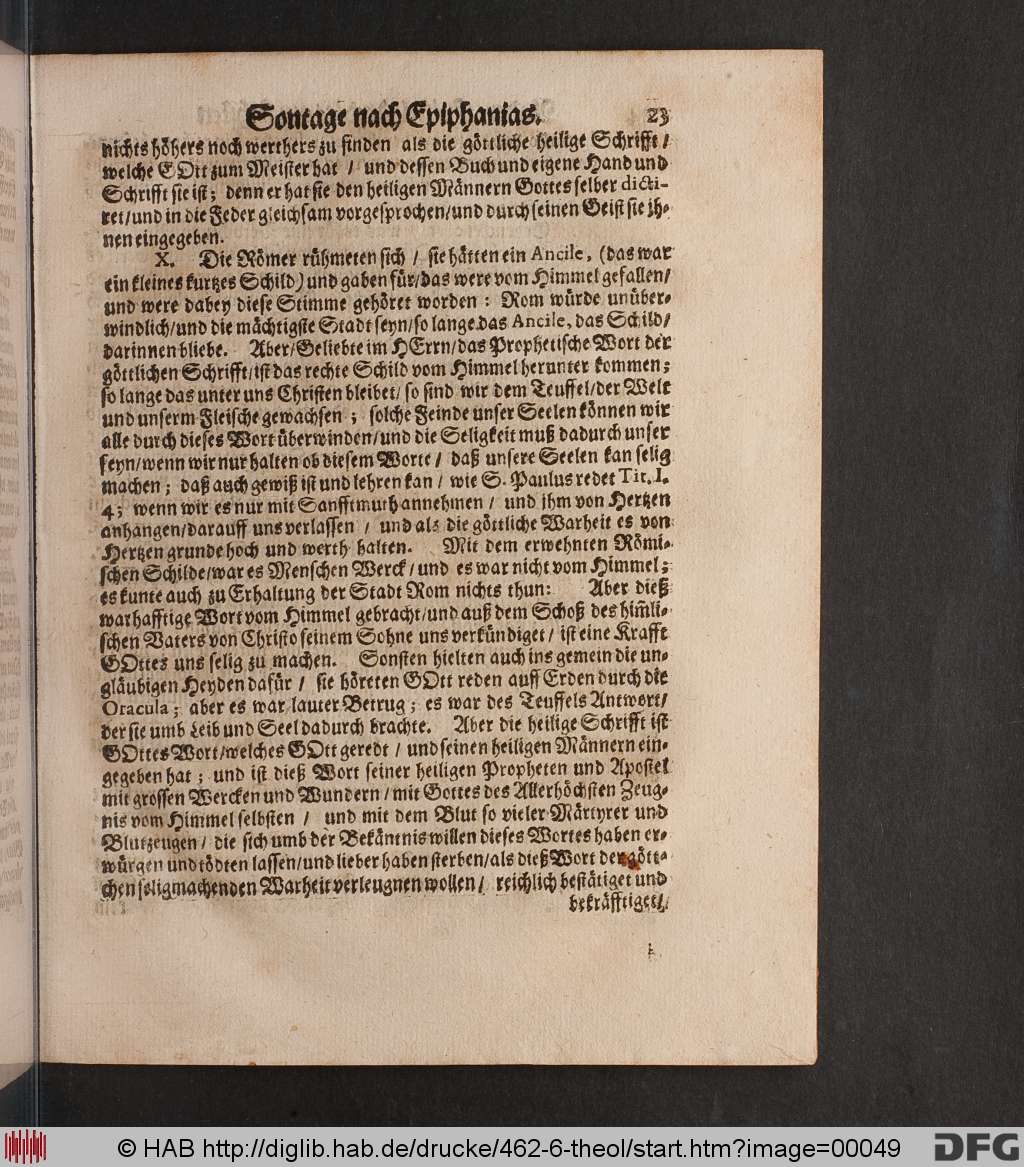 Sontage nach Epiphanias. 23
nichts höhers noch werthers zu finden als die göttliche heilige Schrifft /
welche GOtt zum Meister hat / und dessen Buch und eigene Hand und
Schrifft sie ist; denn er hat sie den heiligen Männern Gottes selber dicti-
ret/und in die Feder gleichsam vorgesprochen/und durch seinen Geist sie jh-
nen eingegeben.
X. Die Römer rühmeten sich / sie hätten ein Ancile, (das war
ein kleines kurtzes Schild) und gaben für/das were vom Himmel gefallen/
und were dabey diese Stimme gehöret worden: Rom würde unüber-
windlich/und die mächtigste Stadt seyn/so lange das Ancile, das Schild/
darinnen bliebe. Aber/Geliebte im HErrn/das Prophetische Wort der
göttlichen Schrifft/ist das rechte Schild vom Himmel herunter kommen;
so lange das unter uns Christen bleibet/ so sind wir dem Teuffel/der Welt
und unserm Fleische gewachsen; solche Feinde unser Seelen können wir
alle durch dieses Wort überwinden/und die Seligkeit muß dadurch unser
seyn/wenn wir nur halten ob diesem Worte / daß unsere Seelen kan selig
machen; daß auch gewiß ist und lehren kan / wie S. Paulus redet Tit. I.
4; wenn wir es nur mit Sanfftmuth annehmen / und jhm von Hertzen
anhangen/darauff uns verlassen / und als die göttliche Warheit es von
Hertzen grunde hoch und werth halten. Mit dem erwehnten Römi-
schen Schilde/war es Menschen Werck/und es war nicht vom Himmel;
es kunte auch zu Erhaltung der Stadt Rom nichts thun: Aber dieß
warhafftige Wort vom Himmel gebracht/und auß dem Schoß des him̃li-
schen Vaters von Christo seinem Sohne uns verkündiget / ist eine Krafft
GOttes uns selig zu machen. Sonsten hielten auch ins gemein die un-
gläubigen Heyden dafür / sie höreten GOtt reden auff Erden durch die
Oracula; aber es war lauter Betrug; es war des Teuffels Antwort/
der sie umb Leib und Seel dadurch brachte. Aber die heilige Schrifft ist
GOttes Wort/welches GOtt geredt / und seinen heiligen Männern ein-
gegeben hat; und ist dieß Wort seiner heiligen Propheten und Apostel
mit grossen Wercken und Wundern / mit Gottes des Allerhöchsten Zeug-
nis vom Himmel selbsten / und mit dem Blut so vieler Märtyrer und
Blutzeugen / die sich umb der Bekäntnis willen dieses Wortes haben er-
würgen und tödten lassen/und lieber haben sterben/als dieß Wort der gött-
chen seligmachenden Warheit verleugnen wollen / reichlich bestätiget und
bekräfftiget/
© HAB http://diglib.hab.de/drucke/462-6-theol/start.htm?image=00049
DFG